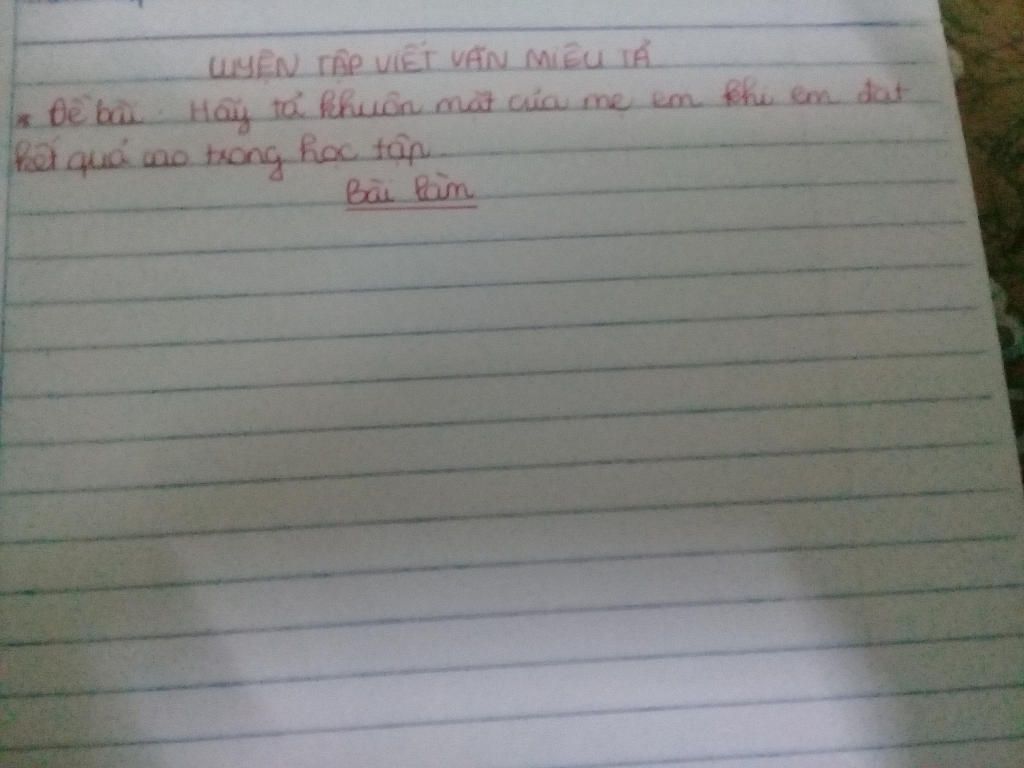 LUYỆN TẬP VIẾT VĂN MIÊU TẢ
* Đề bài. Hãy tả khuôn mặt của mẹ em khi em đạt
kết quả cao trong học tập
Bài làm